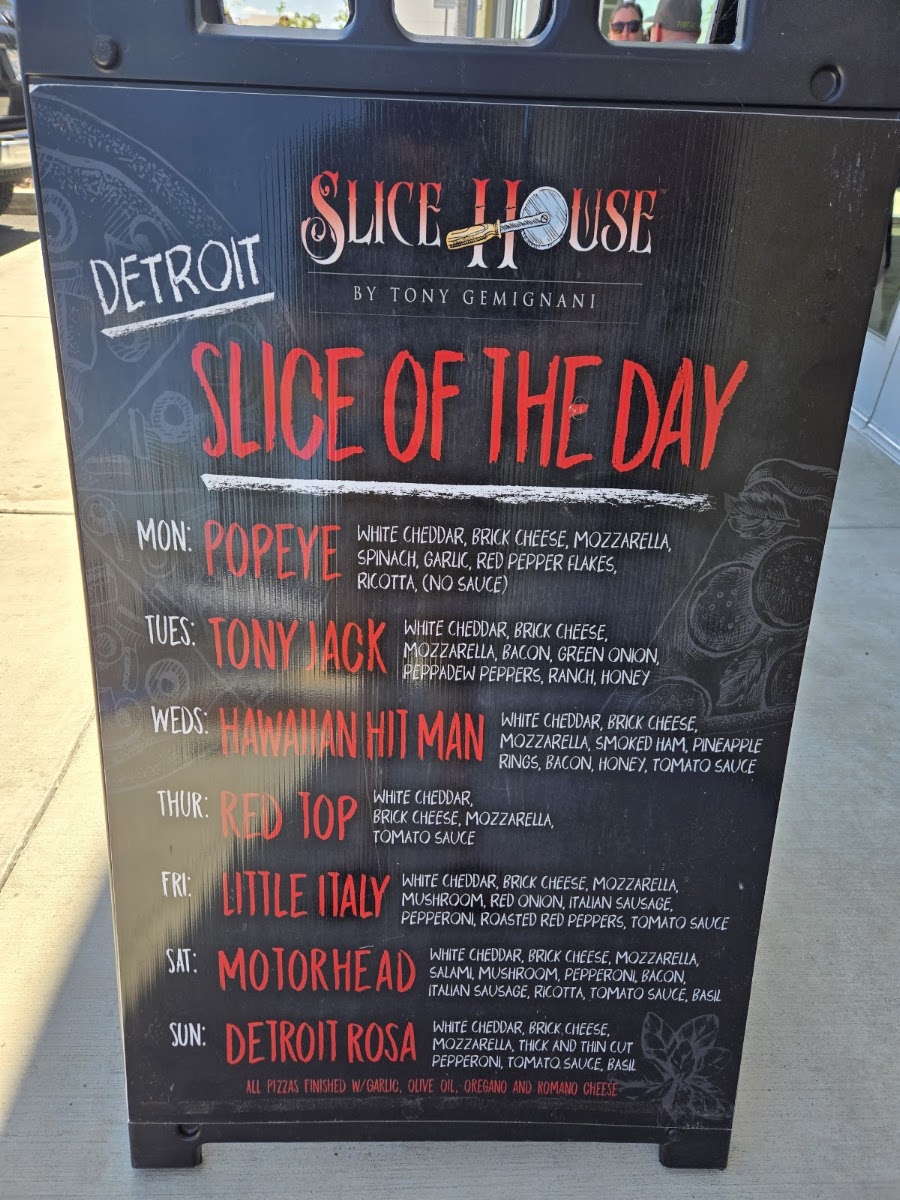 SLICE HOUSE™
BY TONY GEMIGNANI
DETROIT
SLICE OF THE DAY
MON: POPEYE WHITE CHEDDAR, BRICK CHEESE, MOZZARELLA,
SPINACH, GARLIC, RED PEPPER FLAKES,
RICOTTA, (NO SAUCE)
TUES: TONY JACK WHITE CHEDDAR, BRICK CHEESE,
MOZZARELLA, BACON, GREEN ONION,
PEPPADEW PEPPERS, RANCH, HONEY
WEDS: HAWAIIAN HIT MAN WHITE CHEDDAR, BRICK CHEESE,
MOZZARELLA, SMOKED HAM, PINEAPPLE
RINGS, BACON, HONEY, TOMATO SAUCE
THUR: RED TOP WHITE CHEDDAR,
BRICK CHEESE, MOZZARELLA,
TOMATO SAUCE
FRI: LITTLE ITALY WHITE CHEDDAR, BRICK CHEESE, MOZZARELLA,
MUSHROOM, RED ONION, ITALIAN SAUSAGE,
PEPPERONI, ROASTED RED PEPPERS, TOMATO SAUCE
SAT: MOTORHEAD WHITE CHEDDAR, BRICK CHEESE, MOZZARELLA,
SALAMI, MUSHROOM, PEPPERONI, BACON,
ITALIAN SAUSAGE, RICOTTA, TOMATO SAUCE, BASIL
SUN: DETROIT ROSA WHITE CHEDDAR, BRICK CHEESE,
MOZZARELLA, THICK AND THIN CUT
PEPPERONI, TOMATO SAUCE, BASIL
ALL PIZZAS FINISHED W/GARLIC, OLIVE OIL, OREGANO AND ROMANO CHEESE